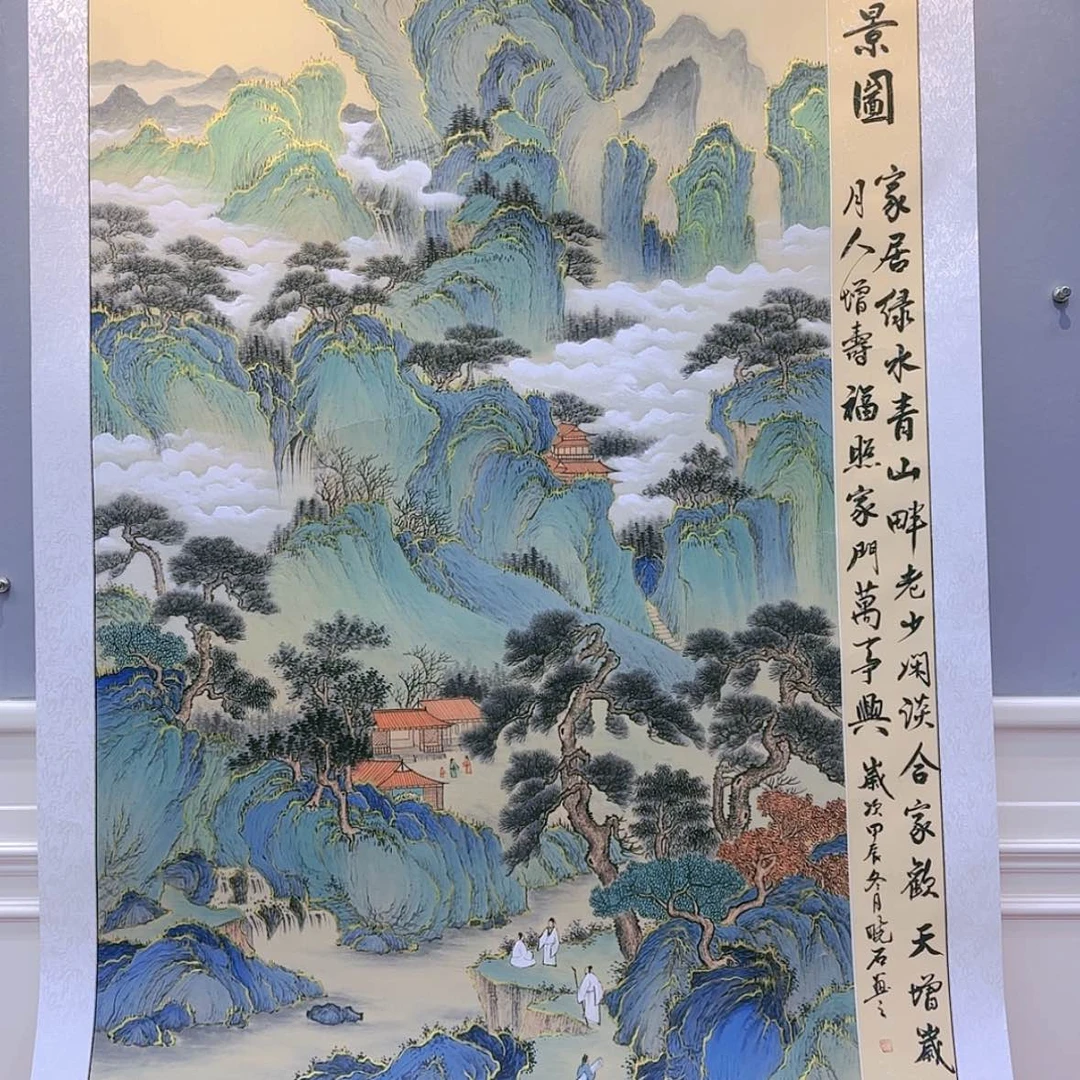 景圖
家居绿水青山畔老少闲谈合家歡天增歲
月人增壽福照家門萬事興
歲次甲辰冬月晓石畫之